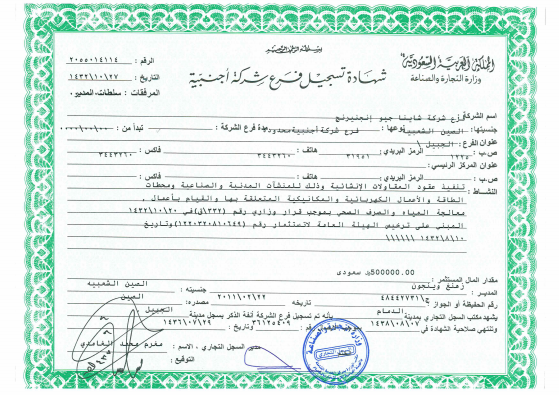 بسم الله الرحمن الرحيم
المملكة العربية السعودية
وزارة التجارة والصناعة
شهادة تسجيل فرع شركة أجنبية
الرقم : ٢٠٥٥٠١٤١١٤
التاريخ : ١٤٣٢/١٠/٢٧
المرفقات : سلطات المدير .
اسم الشركة فرع شركة شاينا جيو إنجنيرنج
جنسيتها : الصين الشعبية نوعها : فرع شركة أجنبية محدودة مدة فرع الشركة : تبدأ من :
عنوان الفرع : الجبيل
ص.ب : ١٢٢٥ الرمز البريدي : ٣١٩٥١ هاتف : ٣٤٤٣٢٦٠ فاكس : ٣٤٤٣٢٦٠
عنوان المركز الرئيسي :
ص.ب : الرمز البريدي : هاتف : فاكس :
النشاط : تنفيذ عقود المقاولات الإنشائية وذلك للمنشآت المدنية والصناعية ومحطات
الطاقة والأعمال الكهربائية والمكانيكية المتعلقة بها والقيام بأعمال .
معالجة المياه والصرف الصحي بموجب قرار وزاري رقم (٣٣٢/ق) في ١٤٣٢/١٠/٢٠
المبنى على ترخيص الهيئة العامة لاستثمار رقم (١٢٢٠٣٢٠٨١٠١٤٩) وتاريخ
١٤٣٢/٨/١٠ \\\\\\
مقدار المال المستثمر : 500000.00 ريال سعودى
المدير : زهنغ ويلجون جنسيته : الصين الشعبيه
رقم الحفيظة أو الجواز ج/٤٨٤٤٢٧٣١ تاريخه ٢٠١١/٠٢/٢٢ مصدره : الصين
يشهد مكتب السجل التجاري بمدينة الدمام بأنه تم تسجيل فرع الشركة آنفة الذكر بسجل مدينة الجبيل
وتنتهي صلاحية الشهادة في ١٤٣٨/٠٨/٠٧ وتاريخ : ١٤٣٦/٠٧/٢٩
مدير السجل التجاري ، الاسم : مفرم محمد الغامدي
التوقيع :